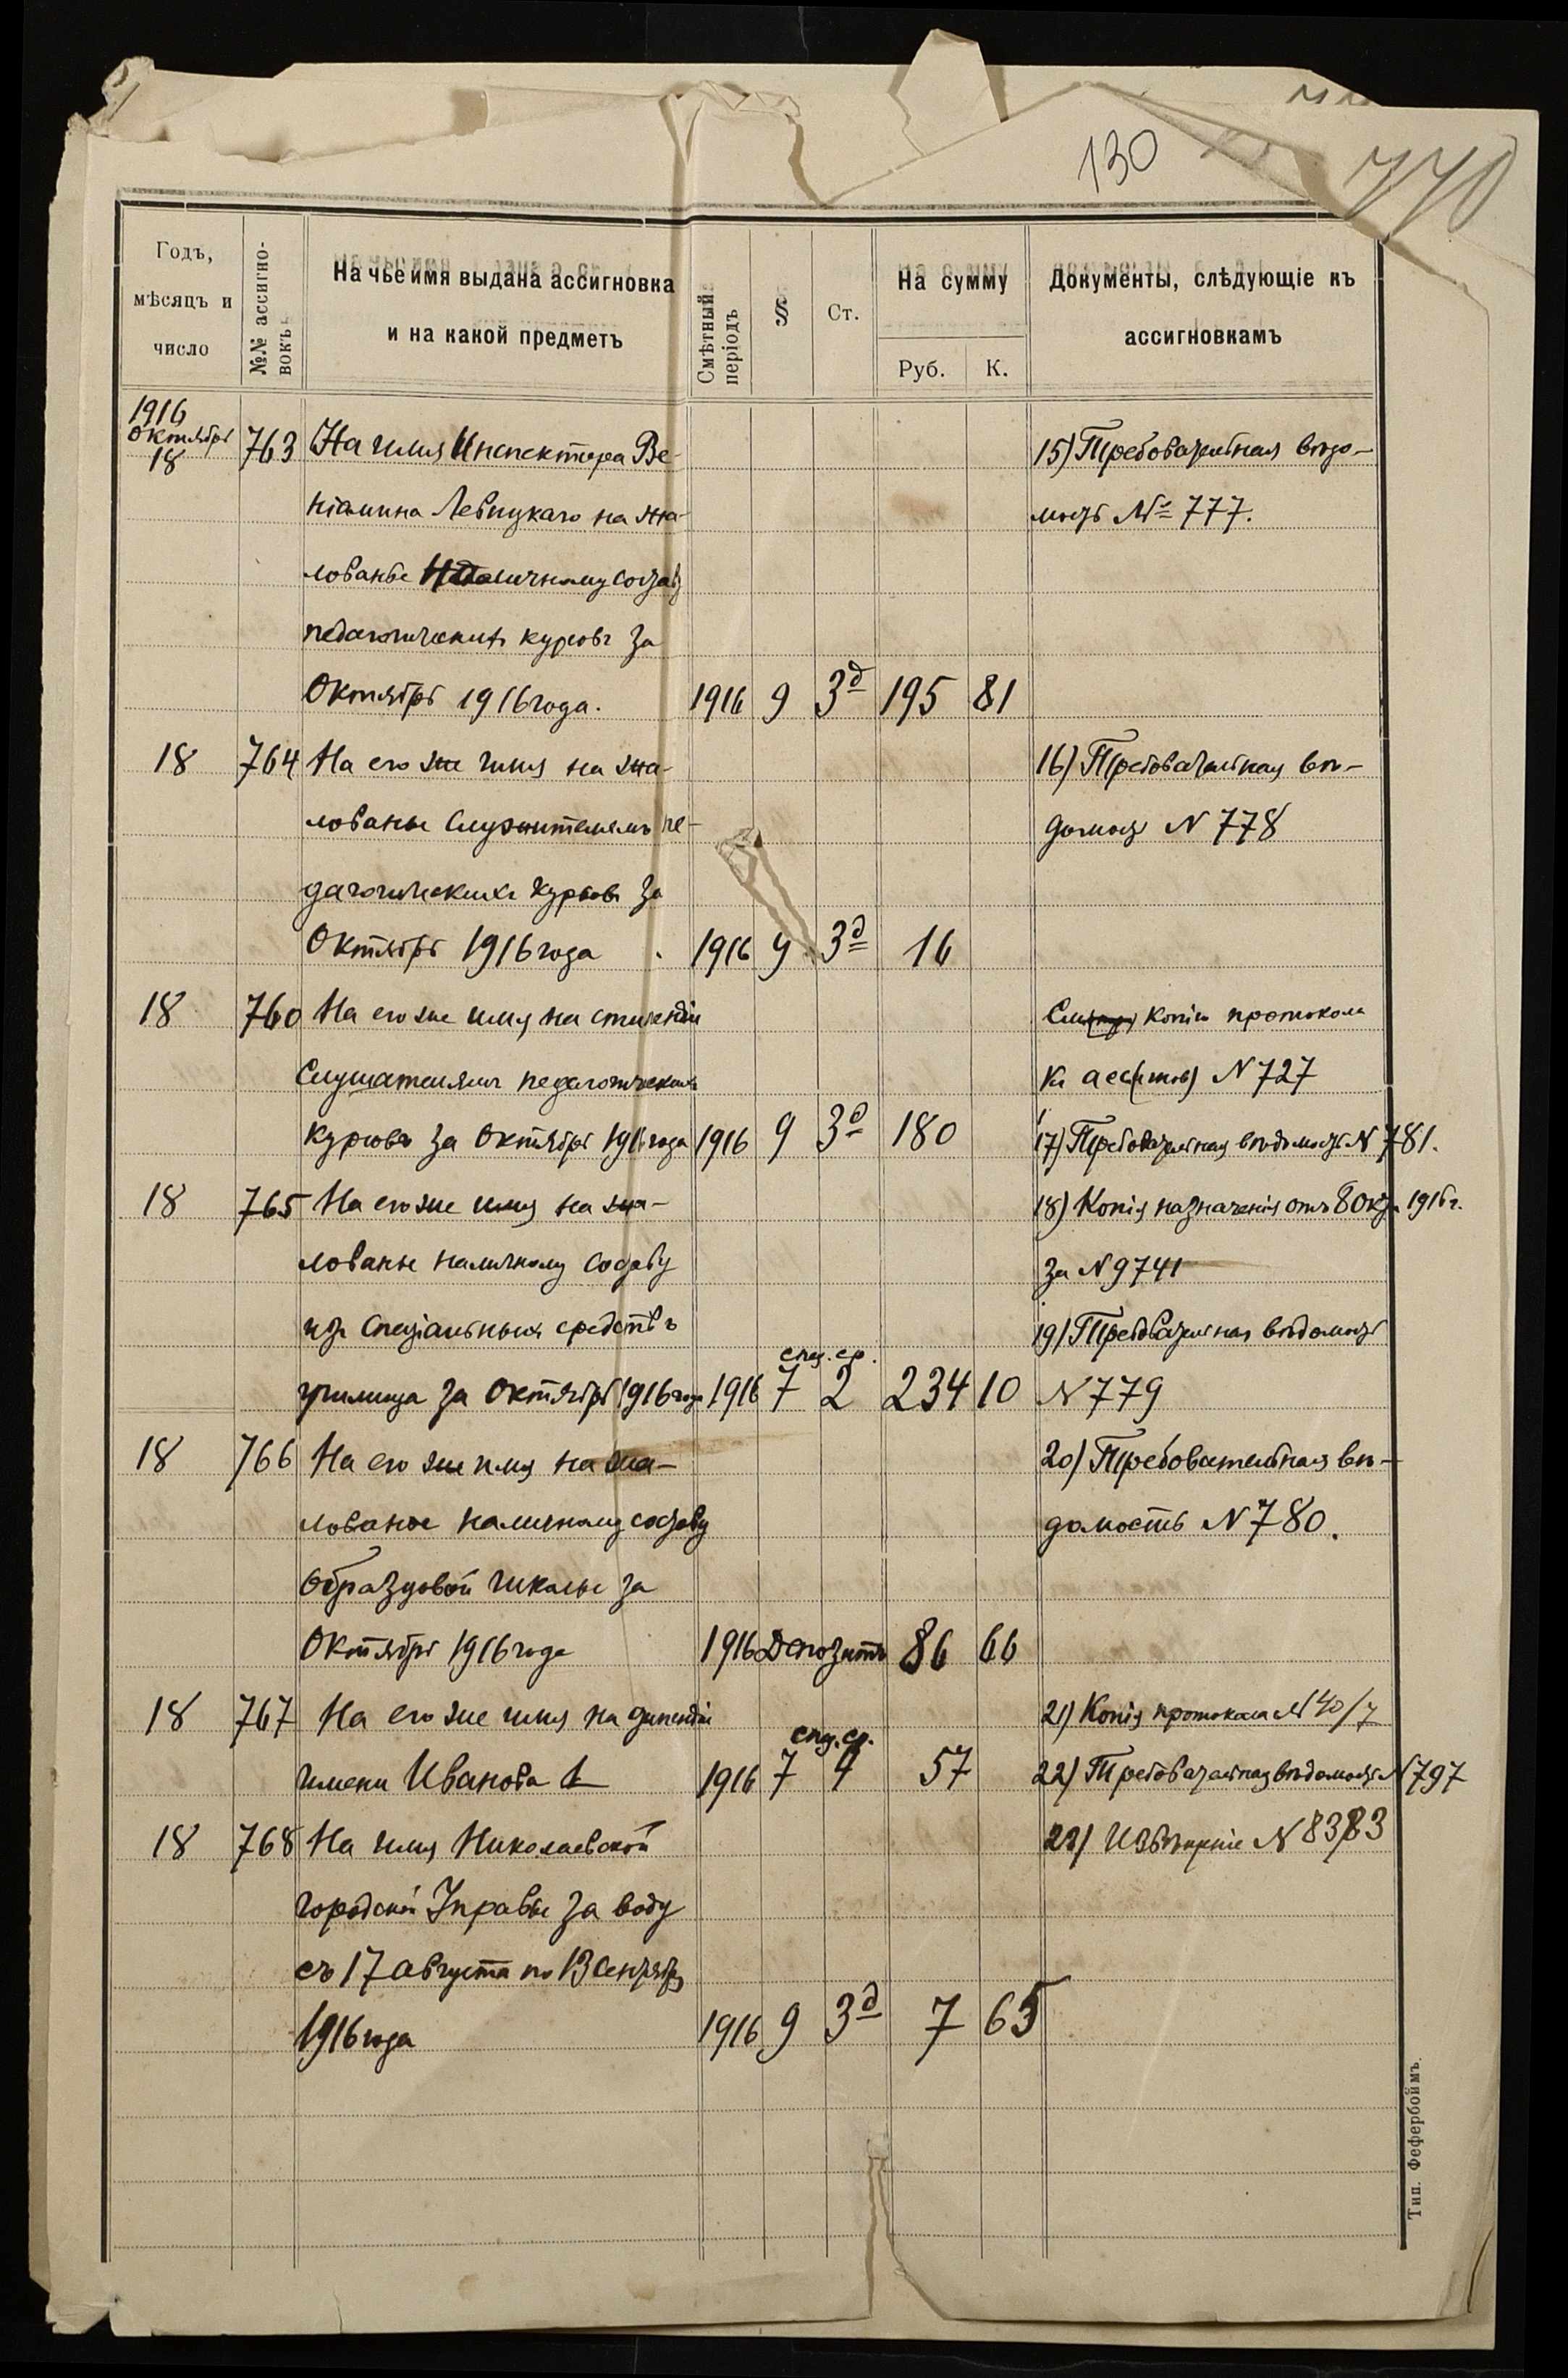 130
770
Годъ, мѣсяцъ и число
№№ ассигновокъ
На чье имя выдана ассигновка и на какой предметъ
Смѣтный періодъ
§
Ст.
На сумму
Руб. К.
Документы, слѣдующіе къ ассигновкамъ
1916
Октября
18 763 На имя Инспектора Ве- 15) Требовательная вѣдо-
ніамина Левицкаго на жа- мость № 777.
лованье личному составу
педагогическихъ курсовъ за
Октябрь 1916 года. 1916 9 3д 195 81
18 764 На его же имя на жа- 16) Требовательная вѣ-
лованье служителямъ пе- домость N 778
дагогическихъ курсовъ за
Октябрь 1916 года 1916 9 3д 16
18 760 На его же имя на стипендіи копію протокола
Слушателямъ педагогическихъ къ N 727
курсовъ за Октябрь 1916 года 1916 9 3д 180 17) Требовательная вѣдомость N 781.
18 765 На его же имя на жа- 18) Копія назначенія отъ 8 Окт. 1916 г.
лованье наличному составу за N 9741
изъ спеціальныхъ средствъ 19) Требовательная вѣдомость
спец. ср.
училища за Октябрь 1916 года 1916 7 2 234 10 N 779
18 766 На его же имя на жа- 20) Требовательная вѣ-
лованье наличному составу домость N 780.
Образцовой школы за
Октябрь 1916 года 1916 Депозитъ 86 66
18 767 На его же имя на стипендіи 21) Копія протокола № 40/7
спец. ср.
имени Иванова 1916 7 4 57 22) Требовательная вѣдомость N 797
18 768 На имя Николаевской 23) Извѣщеніе N 8383
городской Управы за воду
съ 17 августа по 13 Сентября
1916 года 1916 9 3д 7 65
Тип. Фефербоймъ.